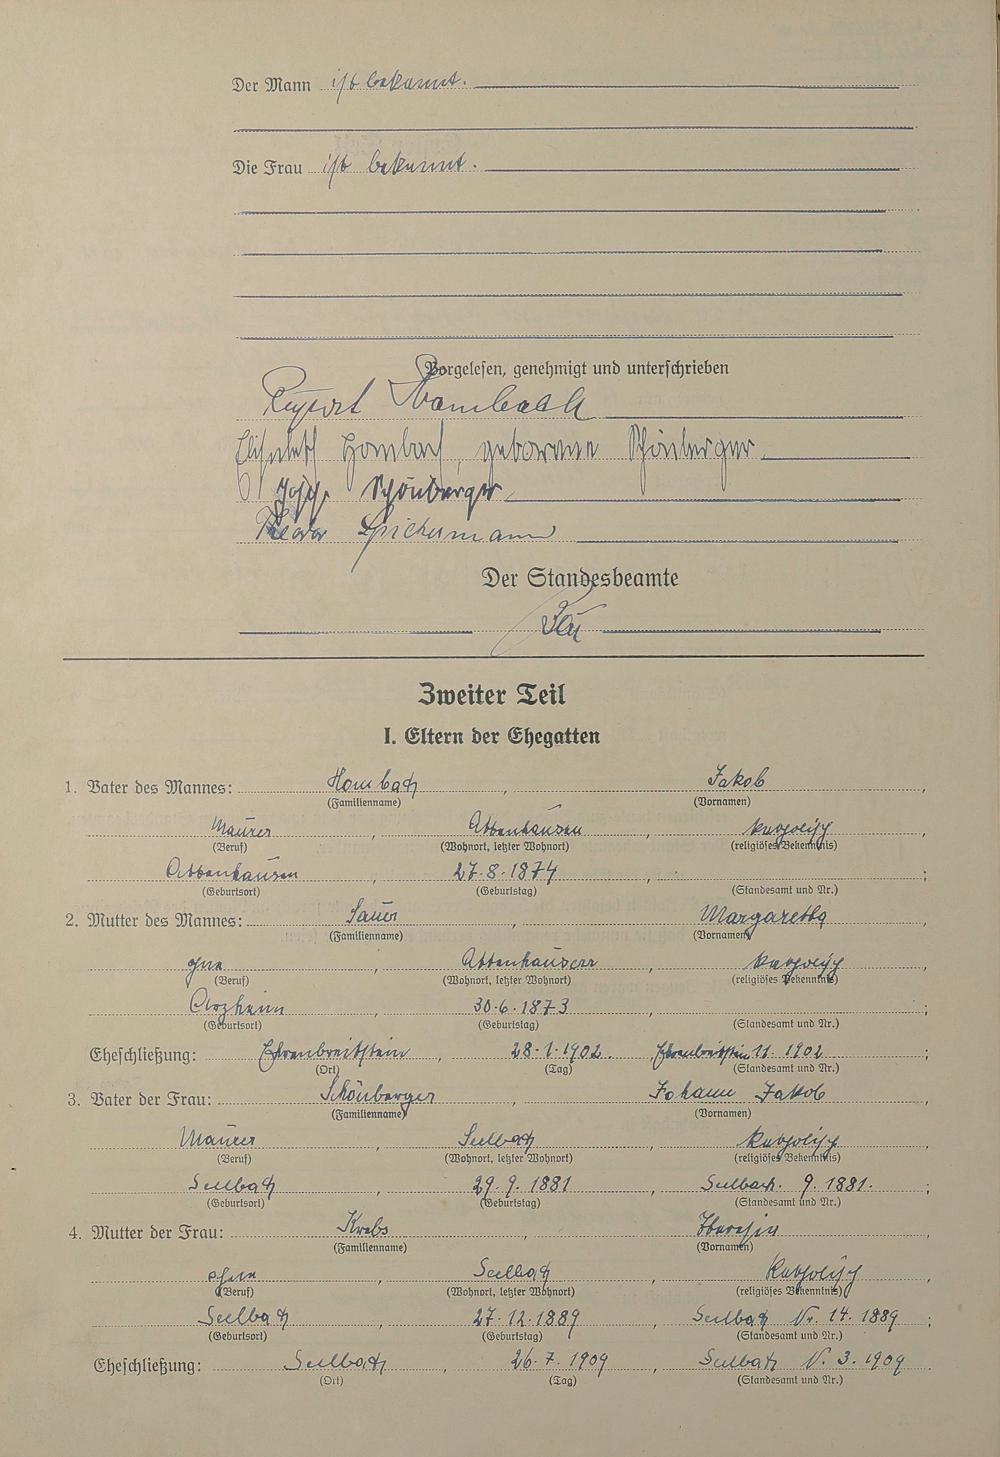 Der Mann ist bekannt.
Die Frau ist bekannt.
Vorgelesen, genehmigt und unterschrieben
Hombach
Elisabeth Hombach, geborene Schönberger
Josef Schönberger
Theodor
Der Standesbeamte
Zweiter Teil
I. Eltern der Ehegatten
1. Vater des Mannes: Hombach, Jakob,
(Familienname) (Vornamen)
Maurer, Attenhausen, katholisch,
(Beruf) (Wohnort, letzter Wohnort) (religiöses Bekenntnis)
Attenhausen, 27.8.1874, ;
(Geburtsort) (Geburtstag) (Standesamt und Nr.)
2. Mutter des Mannes: Sauer, Margaretha,
(Familienname) (Vornamen)
ohne, Attenhausen, katholisch,
(Beruf) (Wohnort, letzter Wohnort) (religiöses Bekenntnis)
Arzheim, 30.6.1873, ;
(Geburtsort) (Geburtstag) (Standesamt und Nr.)
Eheschließung: Ehrenbreitstein, 28.1.1902, Ehrenbreitstein 11. 1902;
(Ort) (Tag) (Standesamt und Nr.)
3. Vater der Frau: Schönberger, Johann Jakob,
(Familienname) (Vornamen)
Maurer, Seelbach, katholisch,
(Beruf) (Wohnort, letzter Wohnort) (religiöses Bekenntnis)
Seelbach, 29.9.1881, Seelbach. 9. 1881. ;
(Geburtsort) (Geburtstag) (Standesamt und Nr.)
4. Mutter der Frau: Krebs, Theresia
(Familienname) (Vornamen)
ohne, Seelbach, katholisch,
(Beruf) (Wohnort, letzter Wohnort) (religiöses Bekenntnis)
Seelbach, 27.12.1889, Seelbach Nr. 14. 1889;
(Geburtsort) (Geburtstag) (Standesamt und Nr.)
Eheschließung: Seelbach, 26.7.1909, Seelbach N. 3. 1909.
(Ort) (Tag) (Standesamt und Nr.)